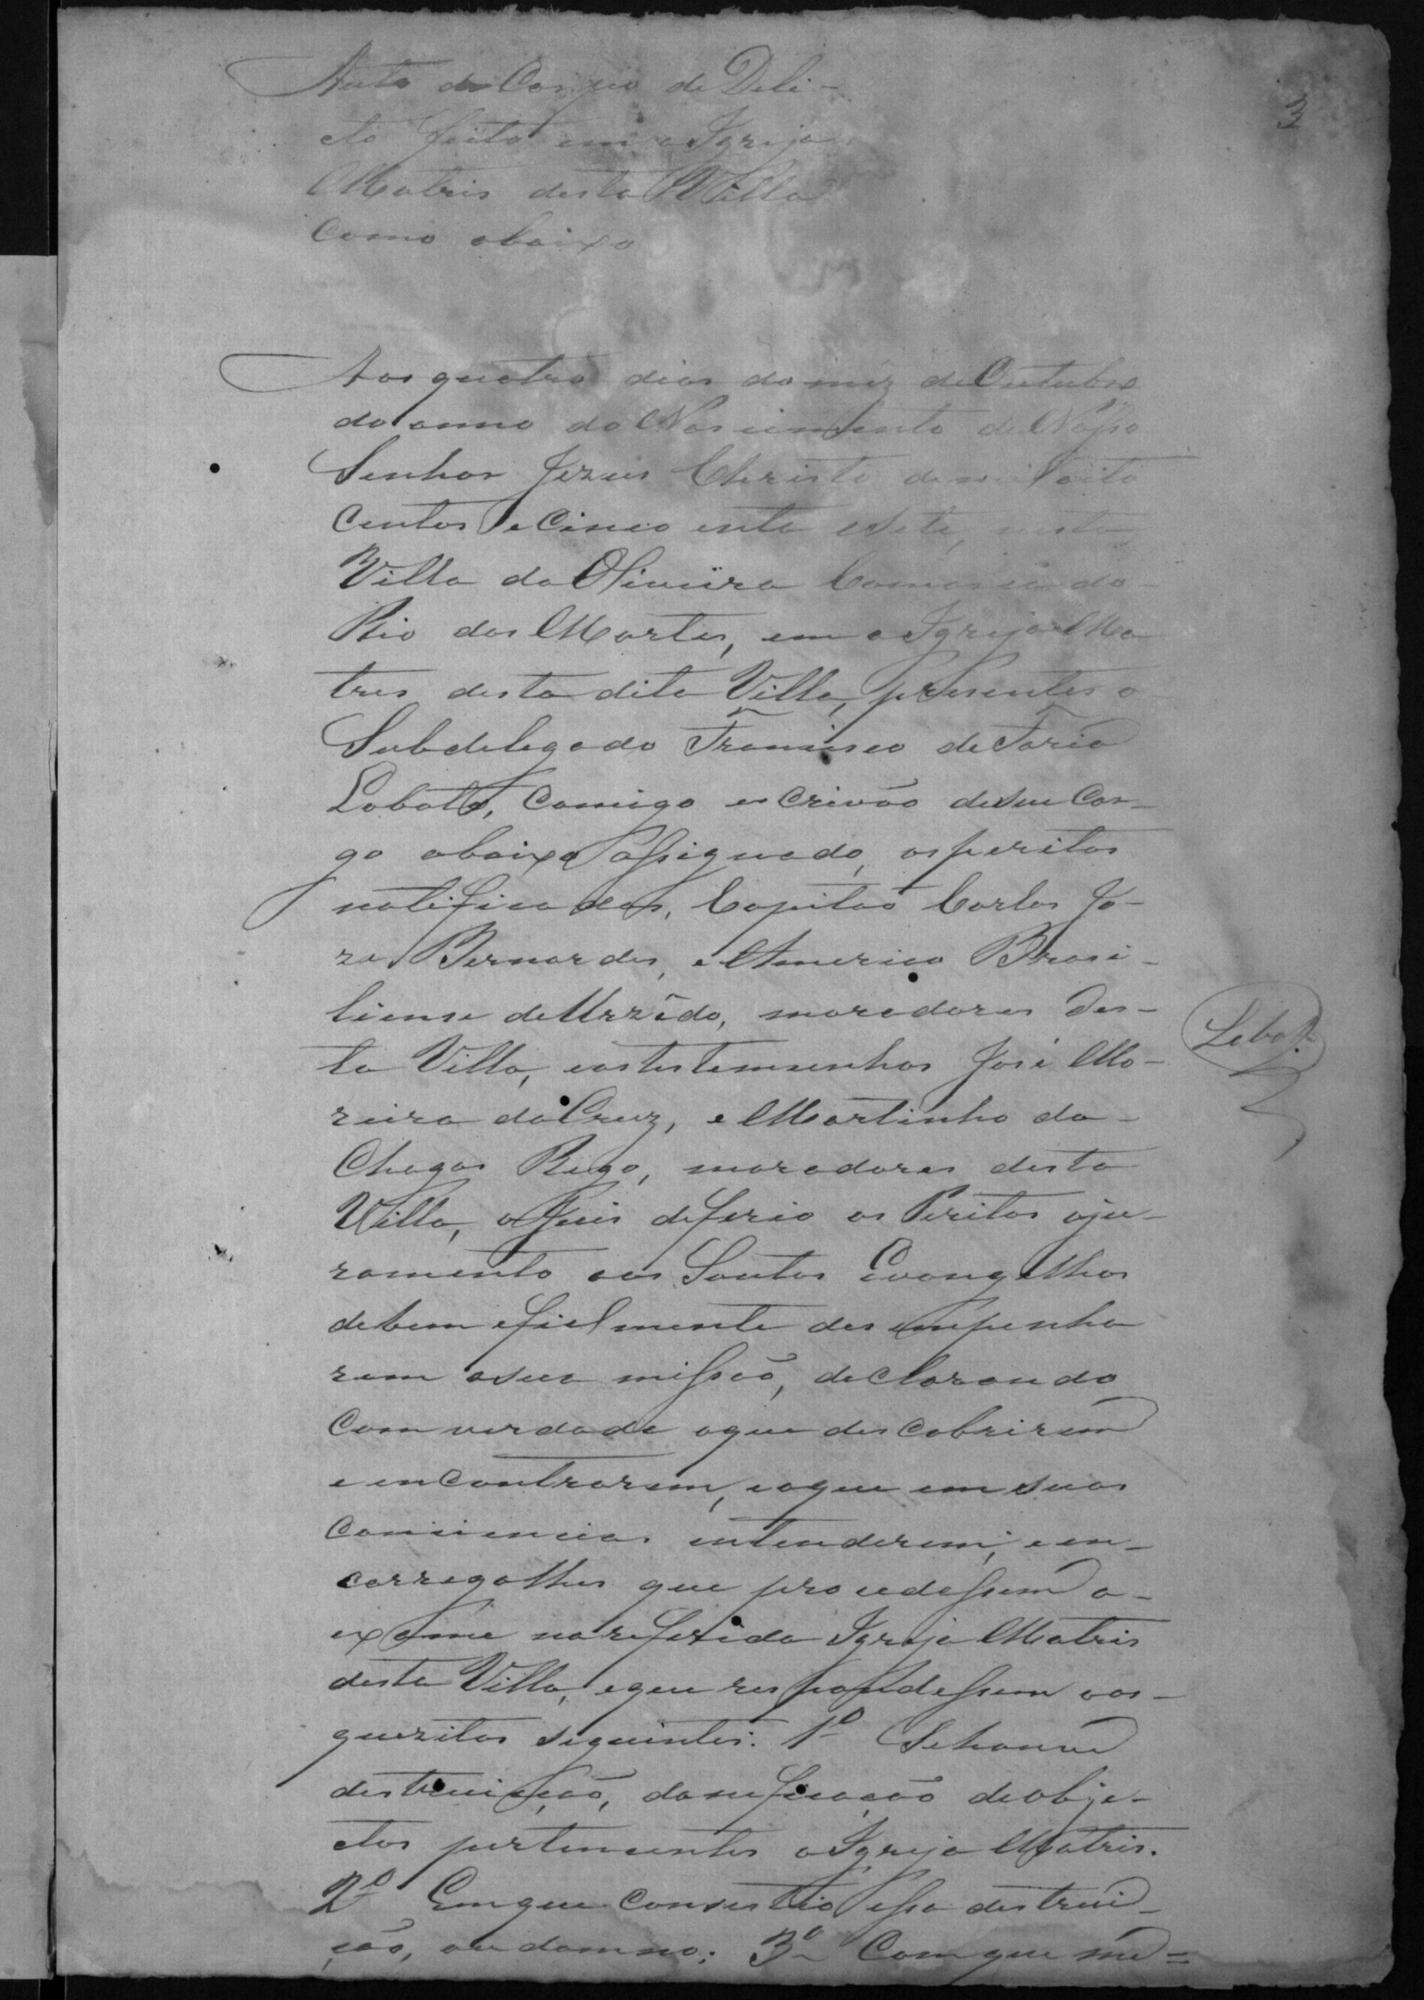 3
Auto de Corpo de Deli-
cto feito em a Igreja
Matris desta Villa
como abaixo
Aos quatro dias do mez de Outubro
do anno do Nascimento de Nosso
Senhor Jezus Christo de mil oito
centos e cinco enta e sete, nesta
Villa da Oliveira Comarca do
Rio das Mortes, em a Igreja Ma
tris desta dita Villa, presentes o
Subdelegado Francisco de Faria
Lobato, comigo escrivão de seu Car-
go abaixo assignado, os peritos
notificados, Capitão Carlos Jo-
ze Bernardes, e Americo Brasi-
liense de Urzêdo, moradores des-
ta Villa, e as testemunhas José Mo-
reira da Cruz, e Martinho da
Chagas Rego, moradores desta
Villa, o Juis deferio os Peritos o ju-
ramento aos Santos Evangelhos
de bem e fielmente desempenha
rem a sua missão, declarando
com verdade o que descobrirem
e encontrarem, e o que em suas
consiencias entenderem; e en-
carregou lhes que procedessem a
exame na referida Igreja Matris
desta Villa, e que respondessem aos
quezitos seguintes: 1º Se houve
destruisção, danificação de obje-
ctos pertencentes a Igreja Matris.
2º Em que consestio essa destrui-
ção, ou damno; 3º Com que me=
Lobato